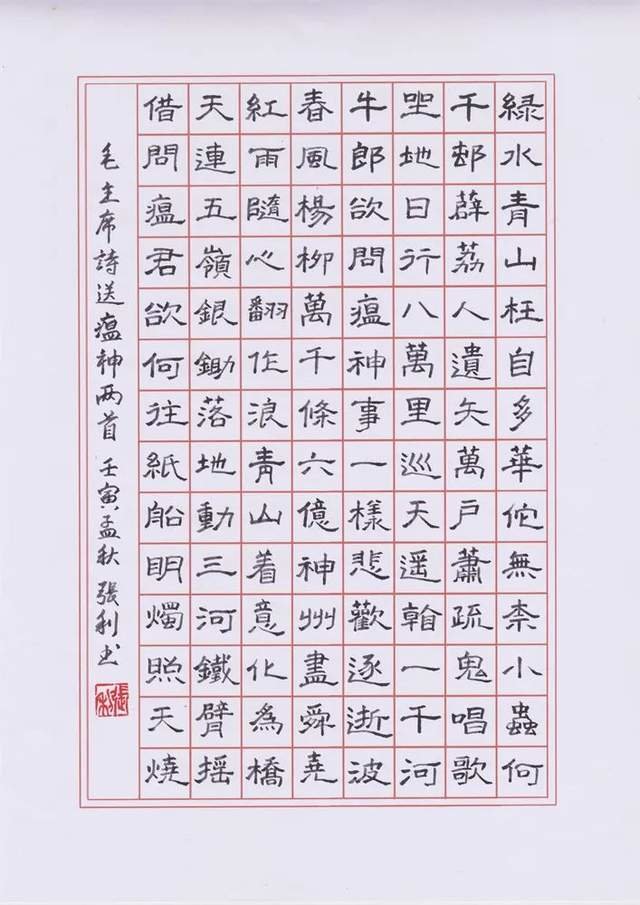 綠水青山枉自多華佗無柰小蟲何
千邨薜荔人遺矢萬戶蕭疏鬼唱歌
坐地日行八萬里巡天遥看一千河
牛郎欲問瘟神事一樣悲歡逐逝波
春風楊柳萬千條六億神州盡舜堯
紅雨隨心翻作浪青山着意化為橋
天連五嶺銀鋤落地動三河鐵臂摇
借問瘟君欲何往紙船明燭照天燒
毛主席詩送瘟神两首 壬寅孟秋 張利书
張利